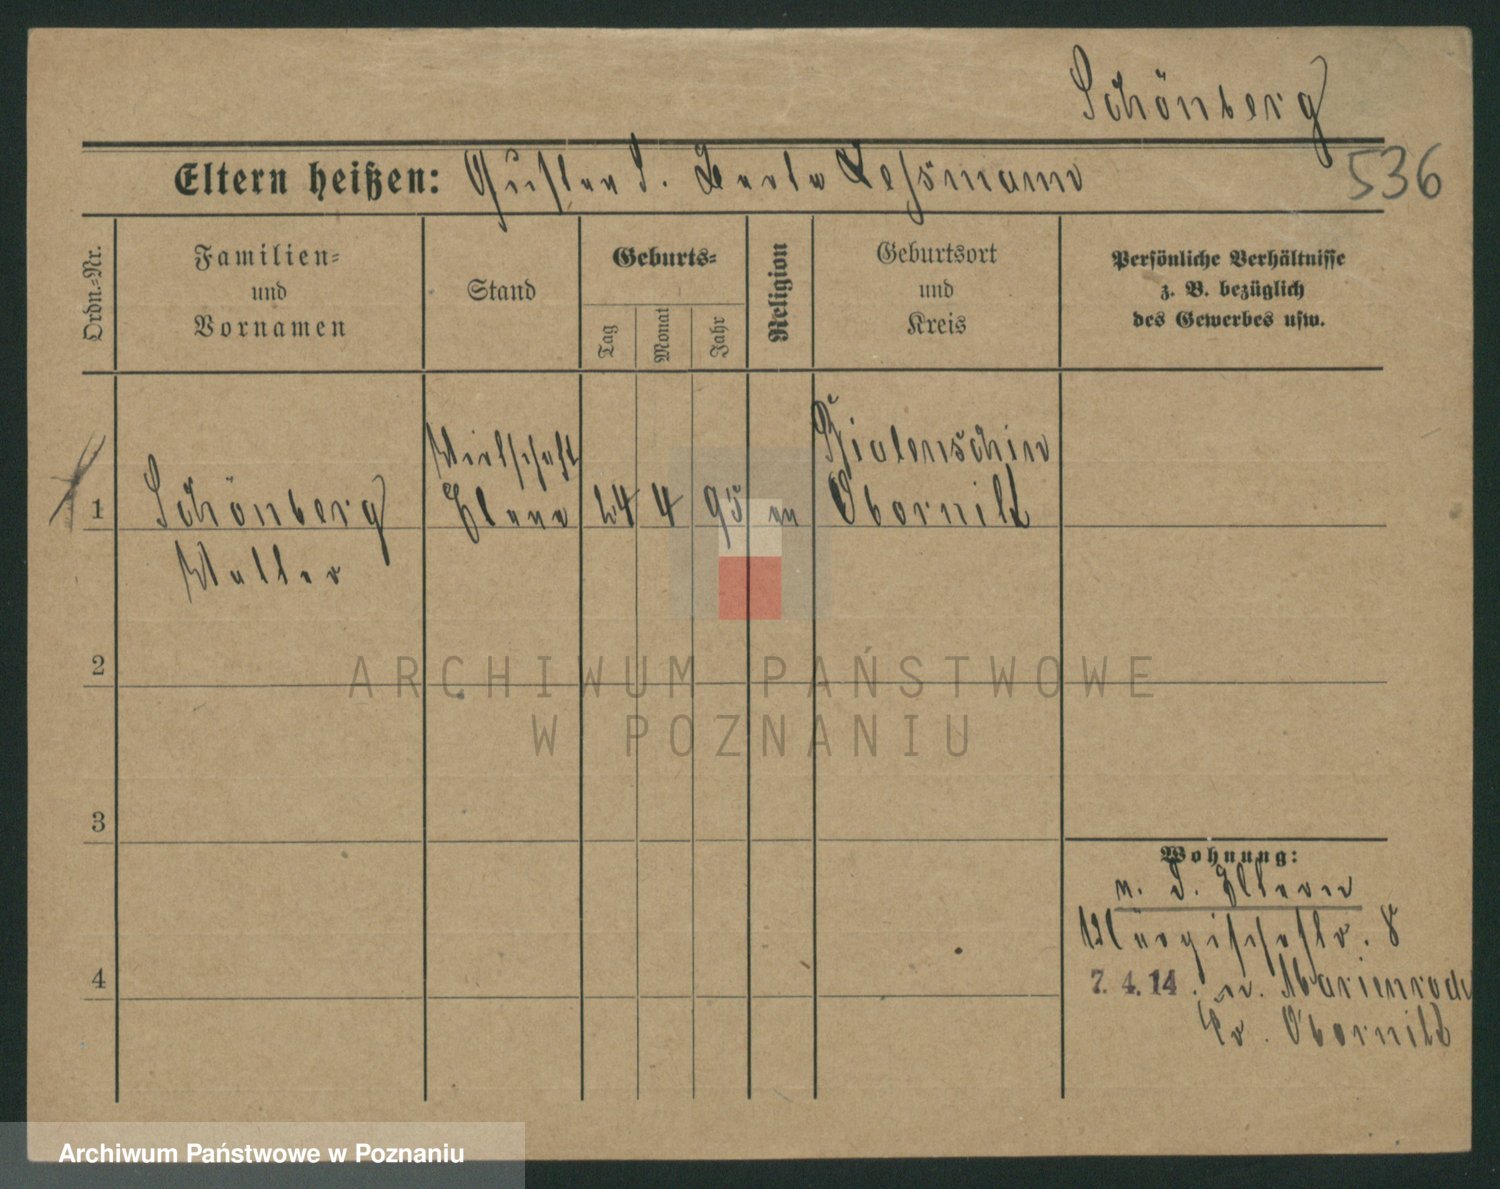 Schönberg
536
Eltern heißen: Gustav S. Berta Lessmann
Ordn.-Nr.
Familien-
und
Vornamen
Stand
Geburts-
Tag
Monat
Jahr
Religion
Geburtsort
und
Kreis
Persönliche Verhältnisse
z. B. bezüglich
des Gewerbes usw.
1
Schönberg
Walter
Wirtschaft
Eleve
24
4
95
ev
Obornik
2
3
4
Wohnung:
b. d. Eltern
8
7. 4. 14. n. Marienrode
Kr. Obornik
ARCHIWUM PAŃSTWOWE
W POZNANIU
Archiwum Państwowe w Poznaniu